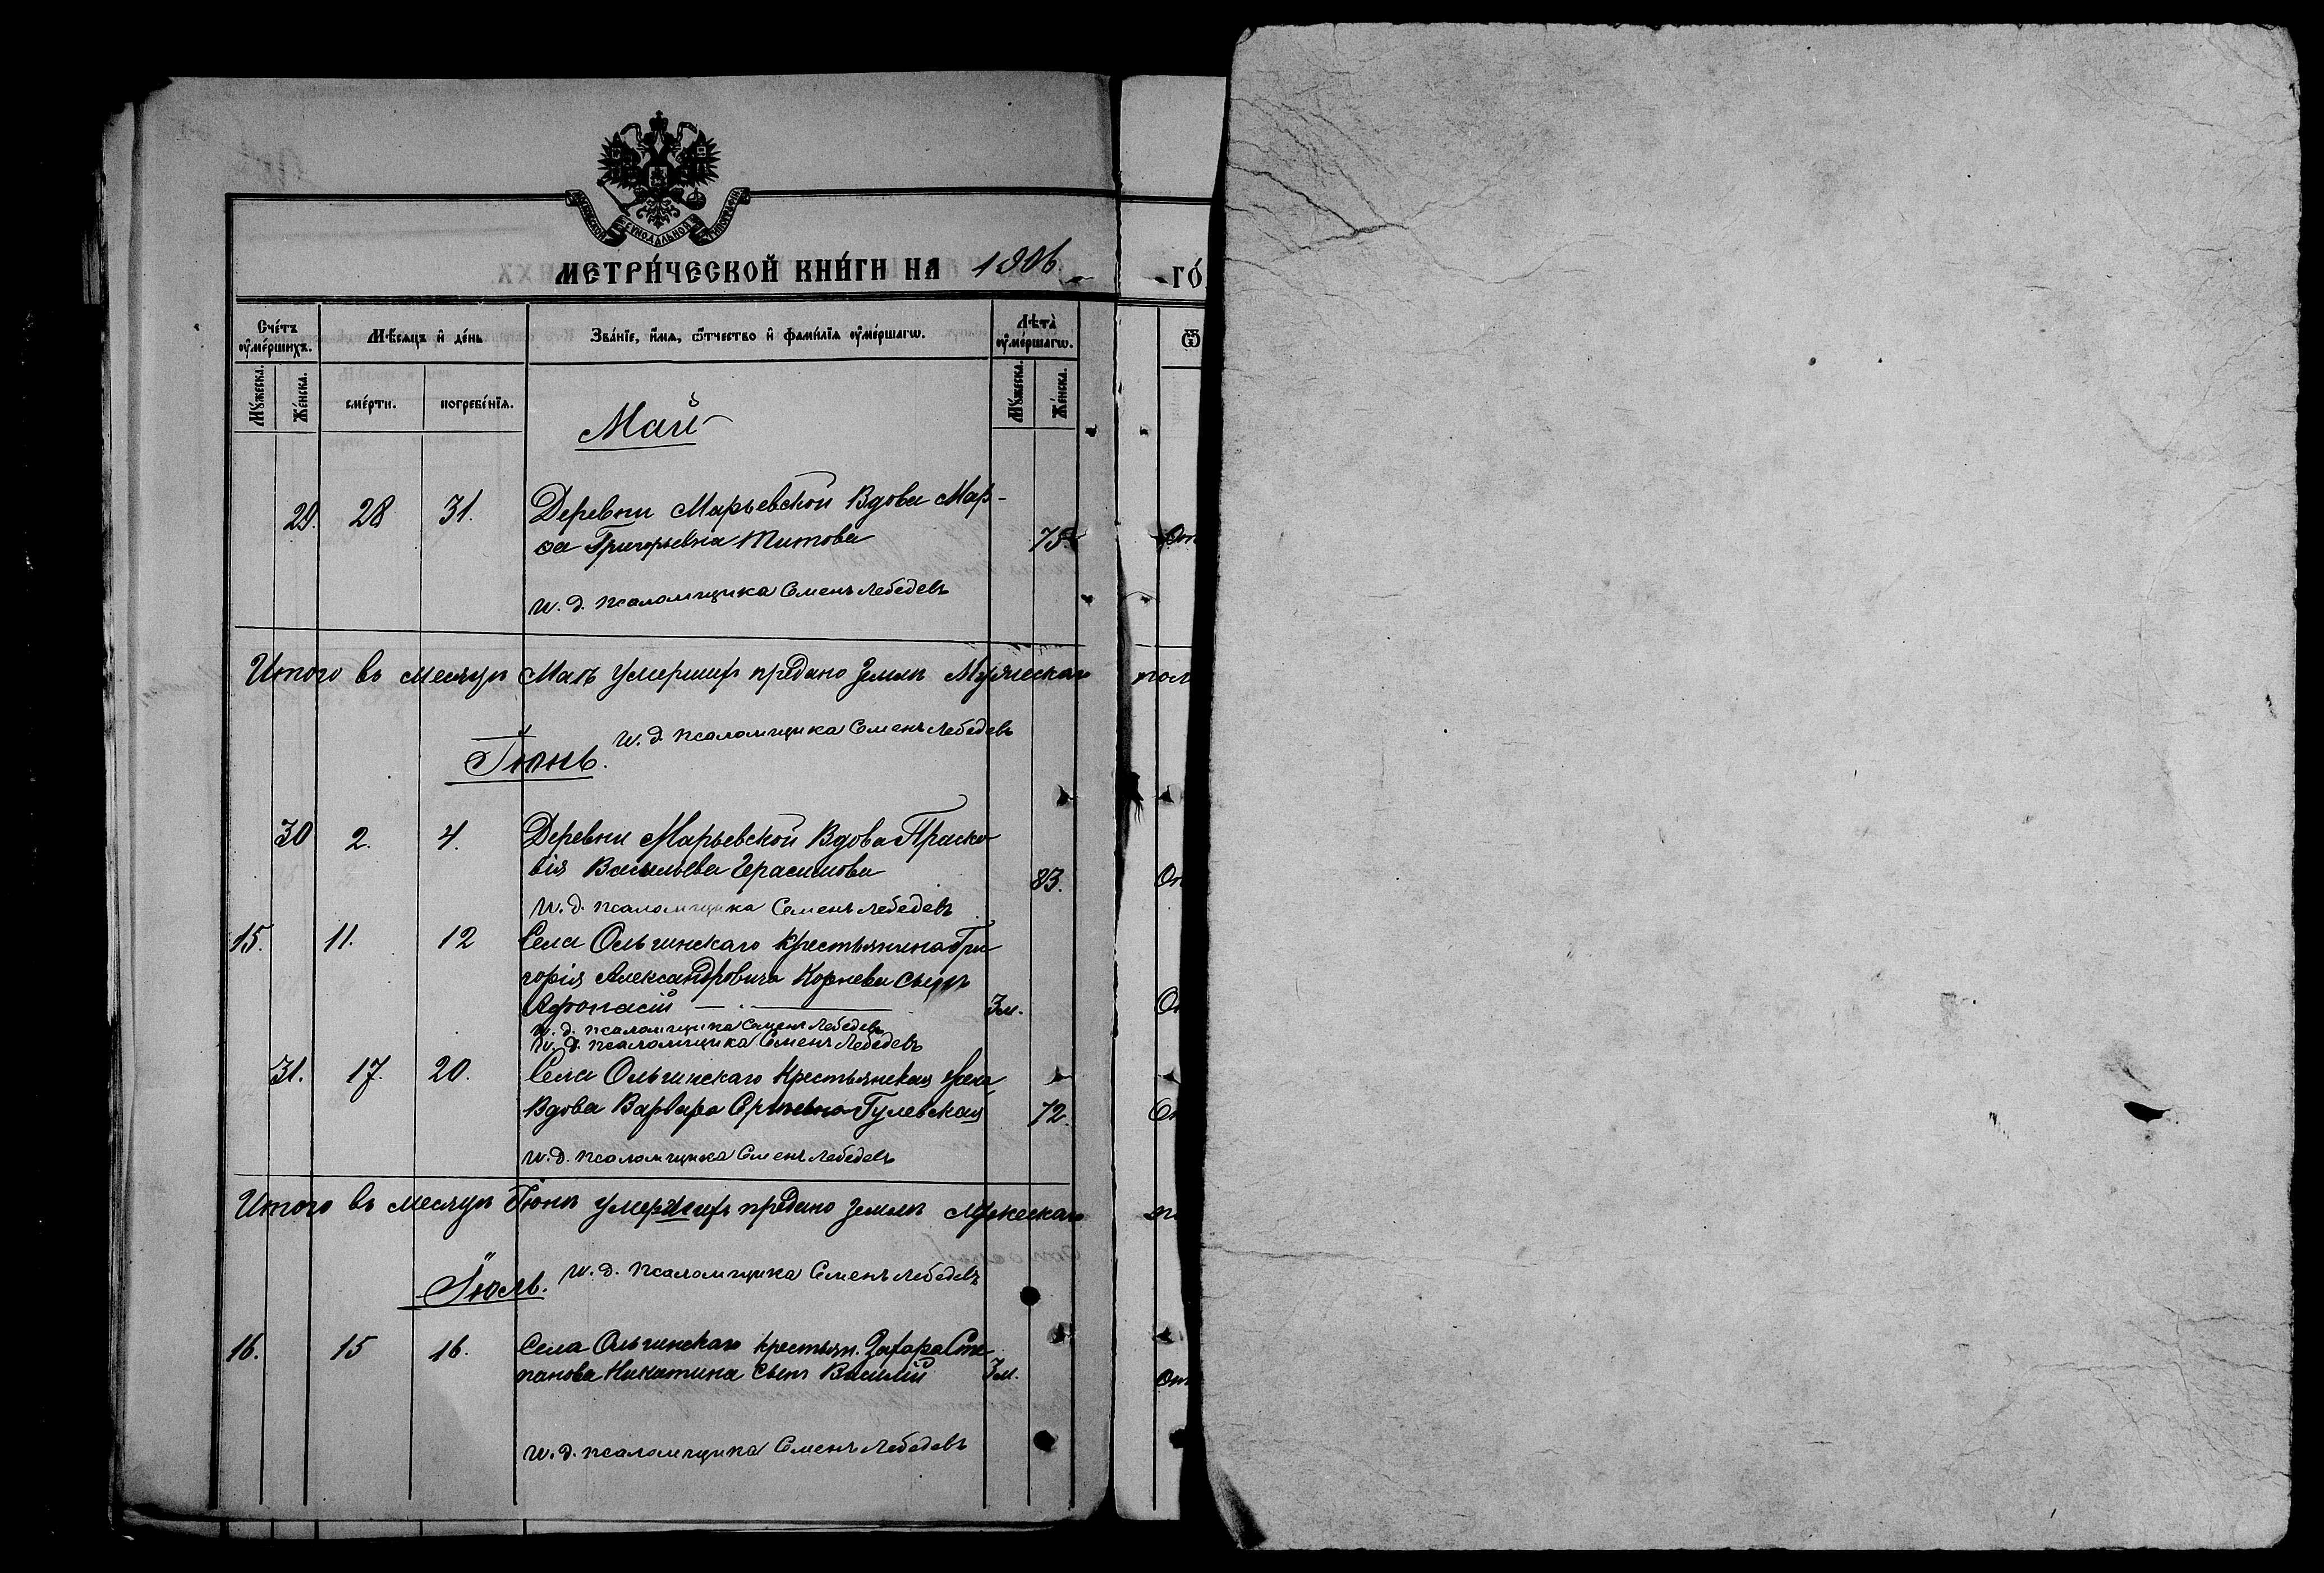 МОСКОВСКОЙ СѴНОДАЛЬНОЙ ТИПОГРАФІИ
МЕТРИ́ЧЕСКОЙ КНИ́ГИ НА 1906 ГО́
Сче́тъ ᲂу҆ме́ршихъ.
Мѣ́сѧцъ и҆ де́нь
Зва́нїе, и҆́мѧ, ѻ҆́тчество и҆ фами́лїѧ ᲂу҆ме́ршагѡ.
Лѣ́та ᲂу҆ме́ршагѡ.
Ѿ
Мꙋ́жеска.
Же́нска.
сме́рти.
погребе́нїѧ.
Мꙋ́жеска.
Же́нска.
Май
29. 28 31. Деревни Марьевской Вдова Мар-
ѳа Григорьевна Титова 75.
И. д. псаломщика Семенъ Лебедевъ
Итого въ месяцѣ Маѣ умершихъ предано земли Мужескаго пол
И. д. псаломщика Семенъ Лебедевъ
Іюнь.
30 2. 4. Деревни Марьевской Вдова Праско
вія Васильева Герасимова 83.
И. д. псаломщика Семенъ Лебедевъ
15. 11. 12 Села Ольгинскаго крестьянина Гри
горія Александровича Корнева сынъ
Афонасій 3 м.
И. д. псаломщика Семенъ Лебедевъ
И. д. псаломщика Семенъ Лебедевъ
31. 17. 20. Села Ольгинскаго Крестьянская
Вдова Варвара Гулевская 72.
И. д. псаломщика Семенъ Лебедевъ
Итого въ месяцѣ Іюнѣ умершихъ предано земли мужескаго
И. д. псаломщика Семенъ Лебедевъ
Іюль.
16. 15 16. Села Ольгинскаго крестьян. Захара Сте
панова Никитина сынъ Василій 3 м.
И. д. псаломщика Семенъ Лебедевъ